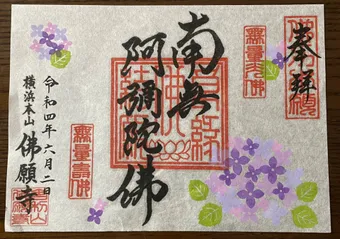 奉拝
南無
阿彌陀佛
無量光佛
無量壽佛
令和四年六月二日
横浜本山 佛願寺